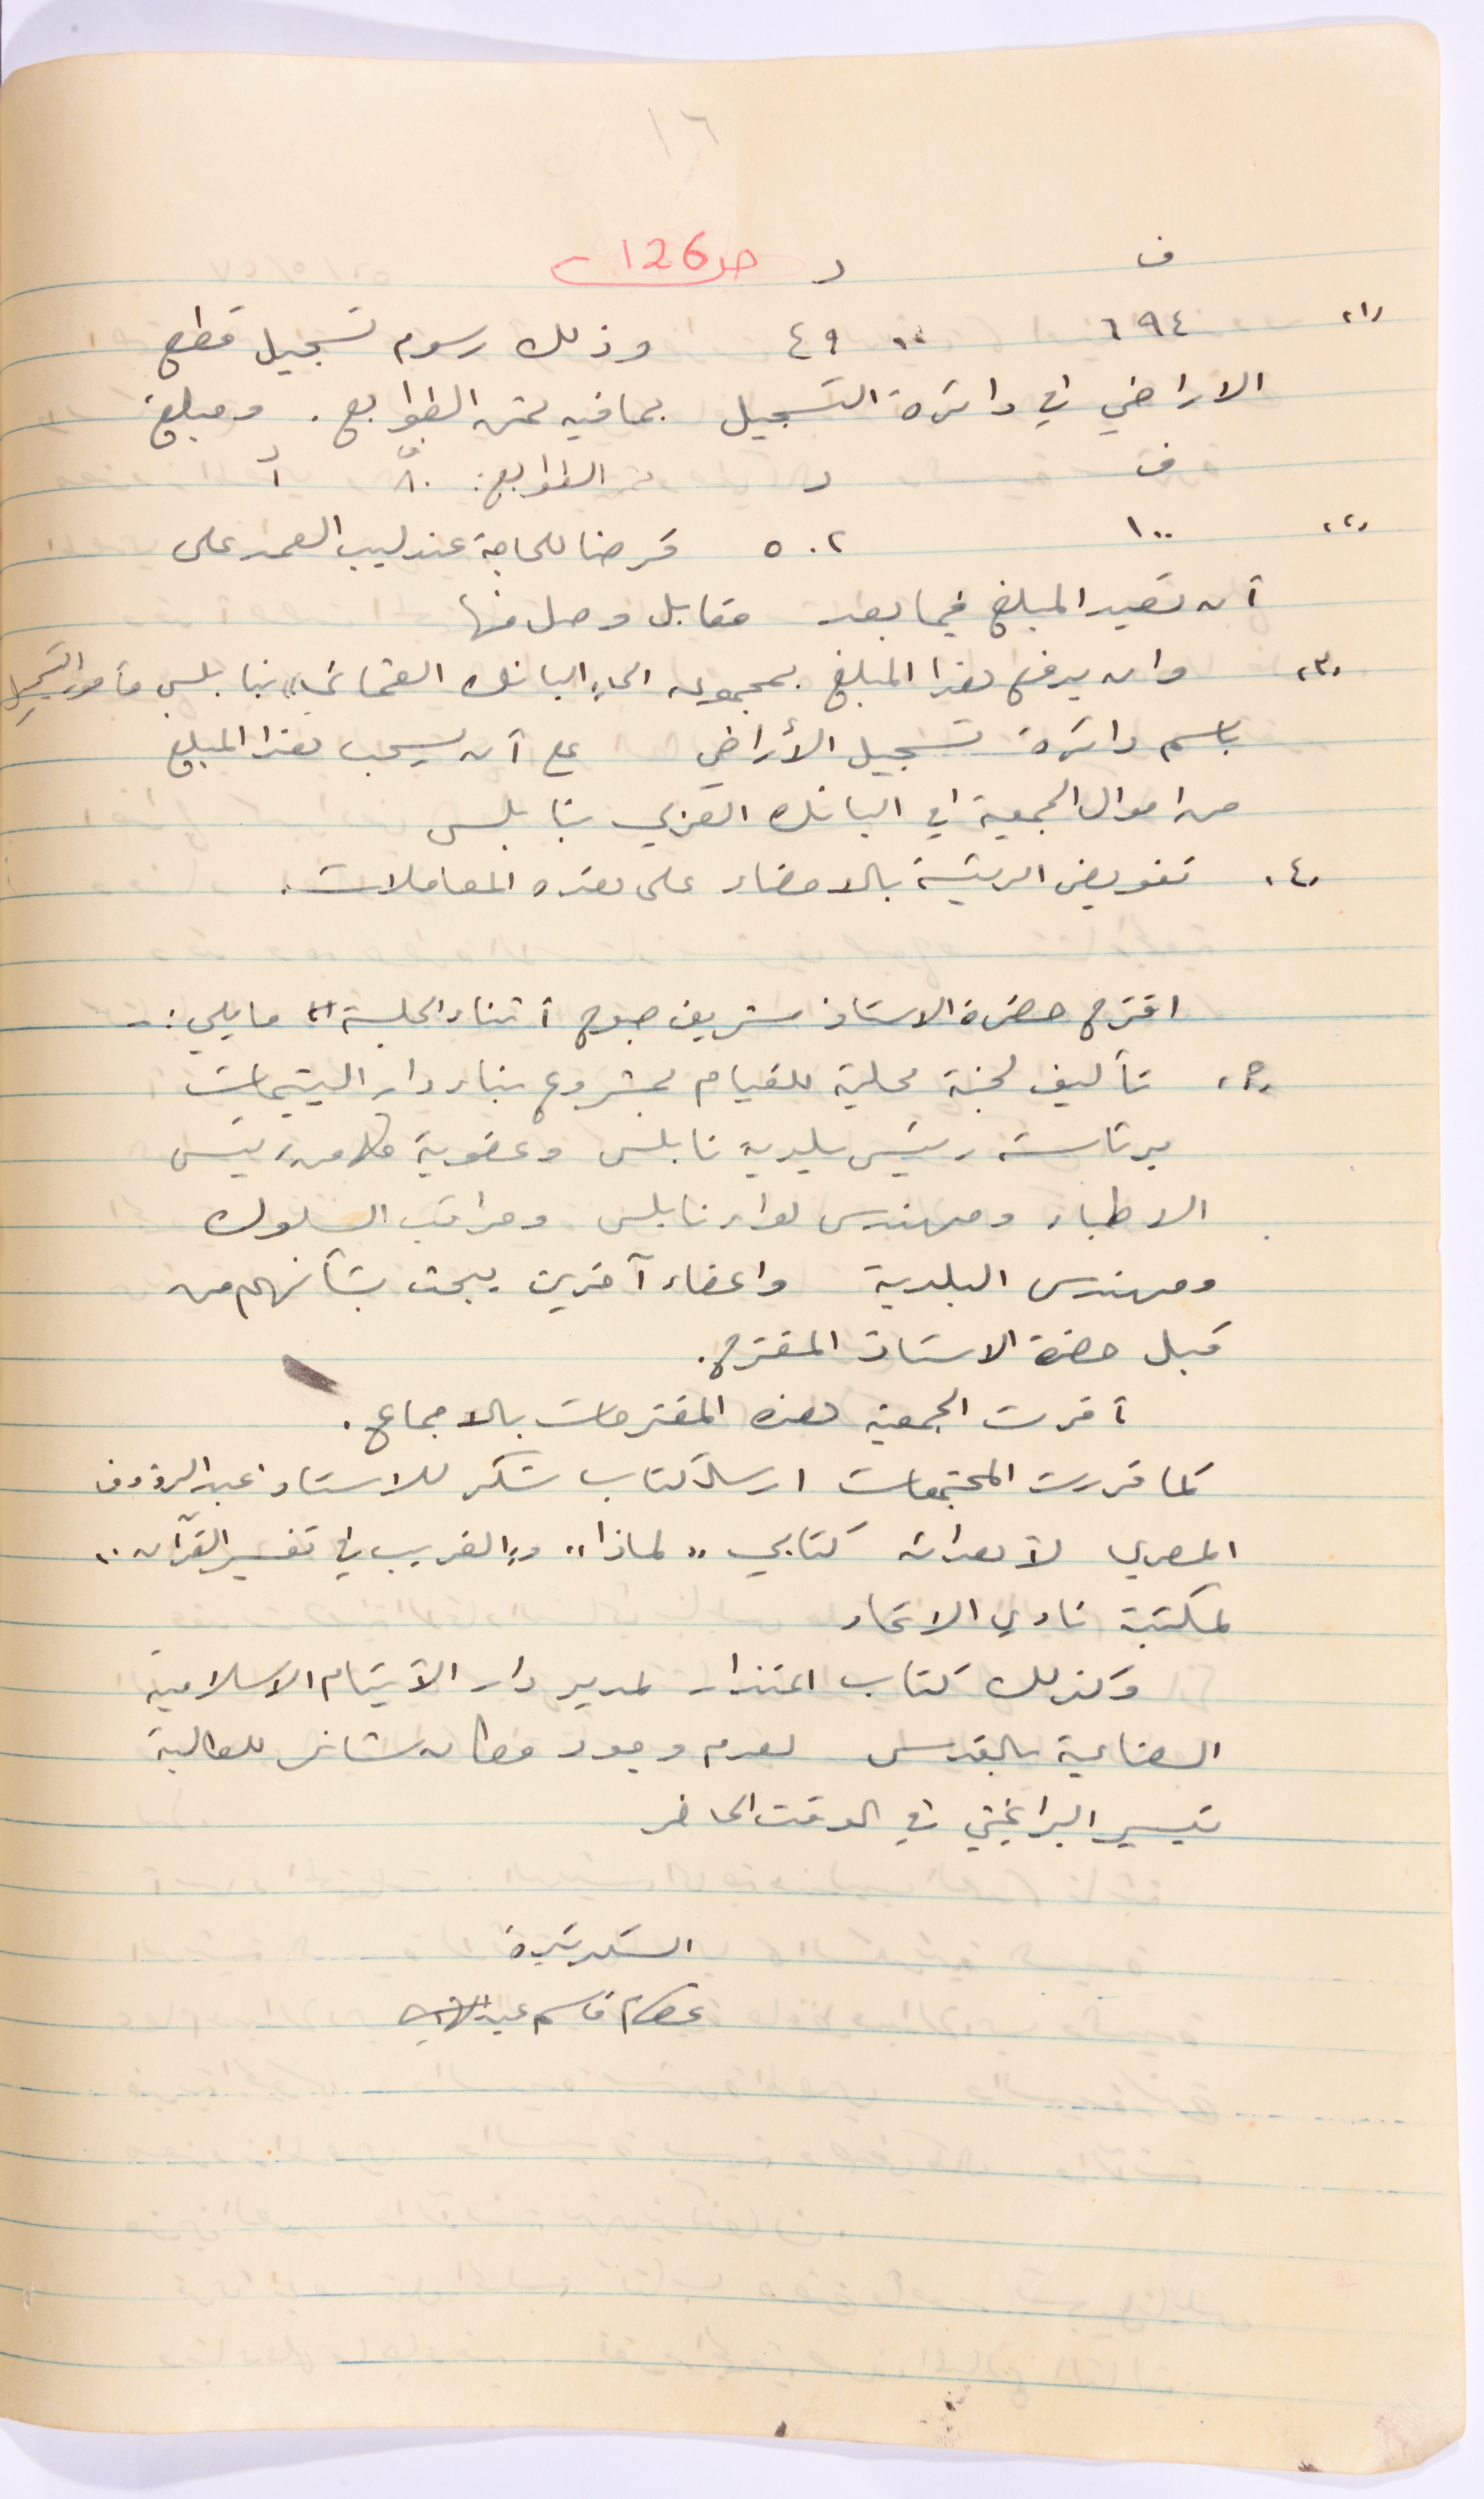 ١٦
ف د ص 126
"١" ٦٩٤ ،، ٤٩ وذلك رسوم تسجيل قطع
الاراضي في دائرة التسجيل بما فيه ثمن الطوابع. ومبلغ
ف د الطوابع: ٨٠ف ١د
"٢" ١٠٠ ٥٠٢ قرضا للحاجة عندليب العمد على
أن تعيد المبلغ فيما بعد مقابل وصل منها
"٣" وان يدفع هذا المبلغ بمجموعه الى "البانك العثماني" بنابلس مأمور التسجيل
باسم دائرة تسجيل الأراضي على أن يسحب هذا المبلغ
من اموال الجمعية في البانك العربي بنابلس
"٤" تفويض الرئيسة بالامضاء على هذه المعاملات.
اقترح حضرة الاستاذ شريف صبوح أثناء الجلسة "١" ما يلي :-
"٥" تأليف لجنة محلية للقيام بمشروع بناء دار اليتيمات
برئاسة رئيس بلدية نابلس وعضوية كلا من رئيس
الاطباء ومهندس لواء نابلس ومراقب السلوك
ومهندس البلدية واعضاء آخرين يبحث بشأنهم من
قبل حضرة الاستاذ المقترح.
أقرت الجمعية هذه المقترحات بالاجماع.
كما قررت المجتمعات ارسال كتاب شكر للاستاذ عبد الرؤوف
المصري لأهدائه كتابي "لماذا" و"الغريب في تفسير القرآن"
لمكتبة نادي الاتحاد
وكذلك كتاب اعتذار لمدير دار الأيتام الاسلامية
الصناعية بالقدس لعدم وجود مكان شاغر للطالبة
تيسير البرانجي في الوقت الحاضر
السكرتيرة
عصام قاسم عبد الهادي